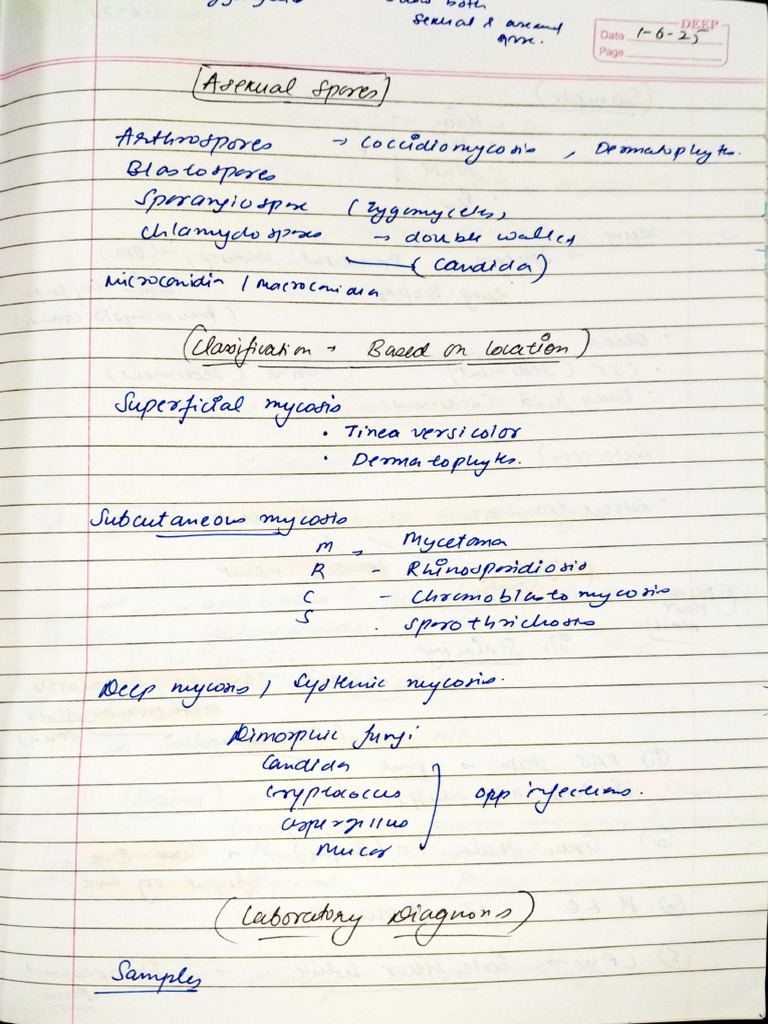 both
sexual & asexual
spore.
DEEP
Date 1-6-25
Page
(Asexual spores)
Arthrospores → Coccidiomycosis, Dermatophytes.
Blastospores
Sporangiospore (Zygomycetes,
Chlamydospores → double walled
(Candida)
Microconidia / Macroconidia
(Classification → Based on location)
Superficial mycosis
• Tinea versicolor
• Dermatophytes.
Subcutaneous mycosis
M → Mycetoma
R - Rhinosporidiosis
C - Chromoblastomycosis
S . Sporothrichosis
Deep mycosis / Systemic mycosis.
Dimorphic fungi
Candida
Cryptococcus opp infections.
Aspergillus
Mucor
(Laboratory Diagnosis)
Samples